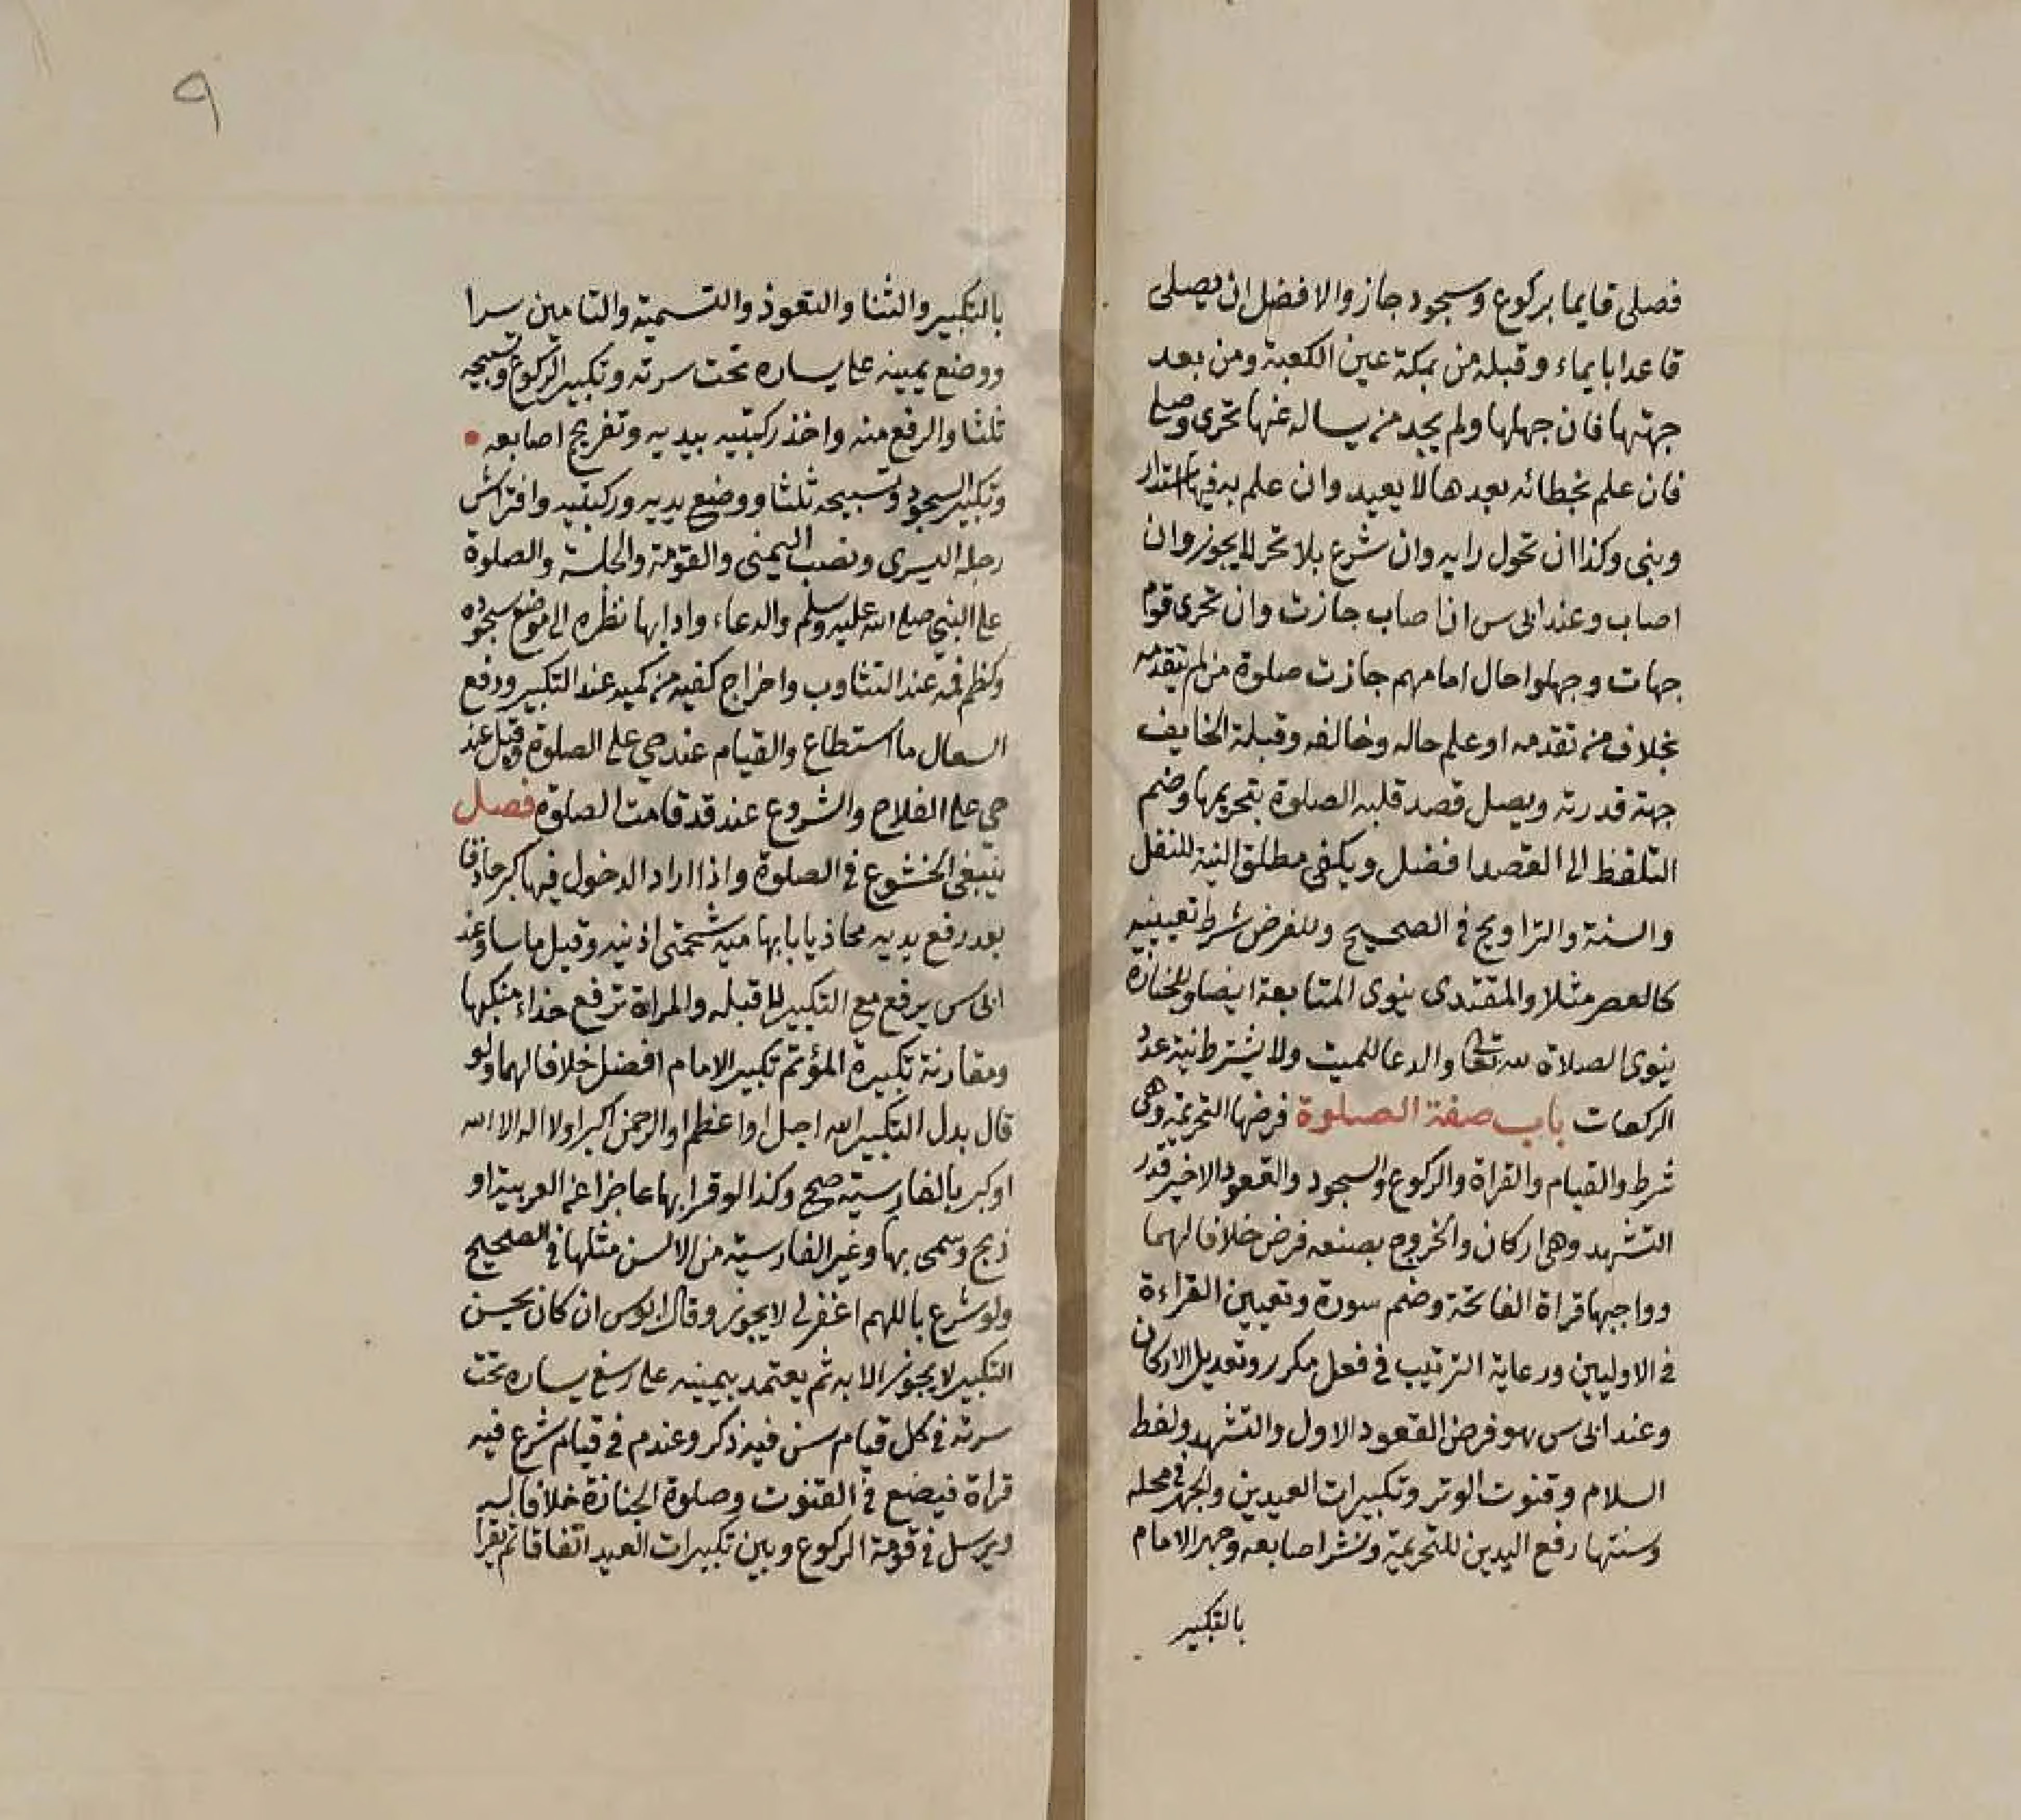 فصلى قايما بركوع وسجود جاز والافضل ان يصلى
قاعدا بايماء وقبلة من بمكة عين الكعبة ومن بعد
جهتها فان جهلها ولم يجد من يساله عنها تحرى وصلى
فان علم بخطائه بعدها لا يعيد وان علم به فيها استدار
وبنى وكذا ان تحول رايه وان شرع بلا تحر لا يجوز وان
اصاب وعند ابى س ان اصاب جازت وان تحرى قوم
جهات وجهلوا حال امامهم جازت صلوة من لم يتقدمه
بخلاف من تقدمه او علم حاله وخالفه وقبلة الخايف
جهة قدرته ويصل قصد قلبه الصلوة بتحريمها وضم
التلفظ الى القصد افضل ويكفى مطلق النية للنفل
والسنة والتراويح فى الصحيح وللفرض شرط تعيينه
كالعصر مثلا والمقتدى ينوى المتابعة ايضا وللجنازة
ينوى الصلاة لله تعالى والدعا للميت ولا يشترط نية عدد
الركعات باب صفة الصلوة فرضها التحريمة وهى
شرط والقيام والقراة والركوع والسجود والقعود الاخير قدر
التشهد وهى اركان والخروج بصنعه فرض خلافا لهما
وواجبها قراة الفاتحة وضم سورة وتعيين القراءة
فى الاوليين ورعاية الترتيب فى فعل مكرر وتعديل الاركان
وعند ابى س هو فرض القعود الاول والتشهد ولفظ
السلام وقنوت الوتر وتكبيرات العيدين والجهر فى محله
وسنتها رفع اليدين للتحريمة ونشر اصابعه وجهر الامام
بالتكبير
٩
بالتكبير والثنا والتعوذ والتسمية والتامين سرا
ووضع يمينه على يساره تحت سرته وتكبير الركوع وتسبيحه
ثلثا والرفع منه واخذ ركبتيه بيديه وتفريج اصابعه
وتكبير السجود وتسبيحه ثلثا ووضع يديه وركبتيه وافتراش
رجله اليسرى ونصب اليمنى والقومة والجلسة والصلوة
على النبى صلى الله عليه وسلم والدعاء وادابها نظره الى موضع سجوده
وكظم فمه عند التثاوب واخراج كفيه من كميه عند التكبير ودفع
السعال ما استطاع والقيام عند حي على الصلوة وقيل عند
حي على الفلاح والشروع عند قد قامت الصلوة فصل
ينبغى الخشوع فى الصلوة واذا اراد الدخول فيها كبر حاذفا
بعد رفع يديه محاذيا بابهاميه شحمتى اذنيه وقيل ماسا وعند
ابى س يرفع مع التكبير لا قبله والمراة ترفع حذاء منكبيها
ومقارنة تكبيرة المؤتم تكبير الامام افضل خلافا لهما ولو
قال بدل التكبير الله اجل او اعظم او الرحمن اكبر او لا اله الا الله
او كبر بالفارسية صح وكذا لو قرا بها عاجزا عن العربية او
ذبح وسمى بها وغير الفارسية من الالسن مثلها فى الصحيح
ولو شرع باللهم اغفر لى لا يجوز وقال ابو س ان كان يحسن
التكبير لا يجوز الا به ثم يعتمد بيمينه على رسغ يساره تحت
سرته فى كل قيام سن فيه ذكر وعند م فى قيام شرع فيه
قراة فيضع فى القنوت وصلوة الجنازة خلافا له
ويرسل فى قومة الركوع وبين تكبيرات العيد اتفاقا ثم يقرا